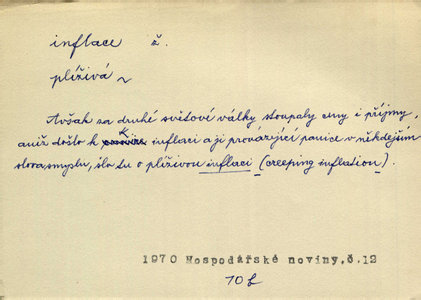 inflace ž.
plíživá ~
Avšak za druhé světové války stoupaly ceny i příjmy,
aniž došlo k inflaci a ji provázející panice v někdejším
slova smyslu, šlo tu o plíživou inflaci (creeping inflation).
1970 Hospodářské noviny,č.12
10